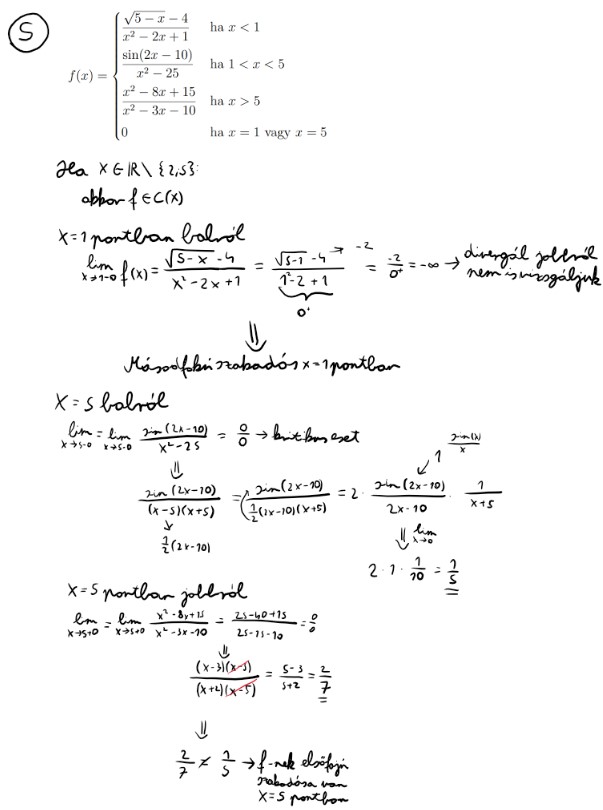 5
f(x) = { (√(5 − x) − 4)/(x² − 2x + 1) ha x < 1
sin(2x − 10)/(x² − 25) ha 1 < x < 5
(x² − 8x + 15)/(x² − 3x − 10) ha x > 5
0 ha x = 1 vagy x = 5
Ha x ∈ ℝ \ {2,5}:
akkor f ∈ C(x)
x = 1 pontban balról
lim x→1-0 f(x) = (√(5-x) - 4)/(x² - 2x + 1) = (√(5-1) - 4)/(1² - 2 + 1) → -2 = -2/0⁺ = -∞ → divergál jobbról
nem is vizsgáljuk
0⁺
⇓
Másodfokú szakadás x = 1 pontban
x = 5 balról
lim x→5-0 = lim x→5-0 sin(2x-10)/(x² - 25) = 0/0 → kritikus eset
⇓
sin(x)/x
1
sin(2x-10)/((x-5)(x+5)) = sin(2x-10)/(½(2x-10)(x+5)) = 2 · sin(2x-10)/(2x-10) · 1/(x+5)
↓
½(2x-10)
⇓ lim x→0
2 · 1 · 1/10 = 1/5
x = 5 pontban jobbról
lim x→5+0 = lim x→5+0 (x² - 8x + 15)/(x² - 3x - 10) = (25 - 40 + 15)/(25 - 15 - 10) = 0/0
⇓
(x-3)(x-5)/((x+2)(x-5)) = (5-3)/(5+2) = 2/7
⇓
2/7 ≠ 1/5 → f-nek elsőfajú
szakadása van
x = 5 pontban